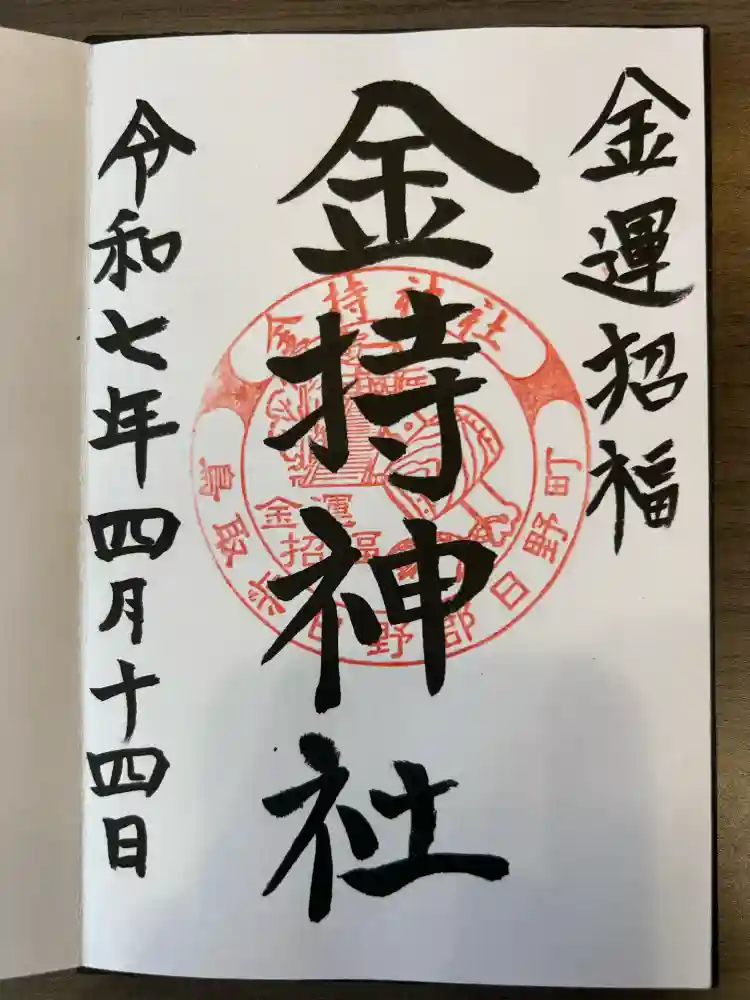 金運招福
金持神社
令和七年四月十四日
金持神社
金運
招福
鳥取県日野郡日野町